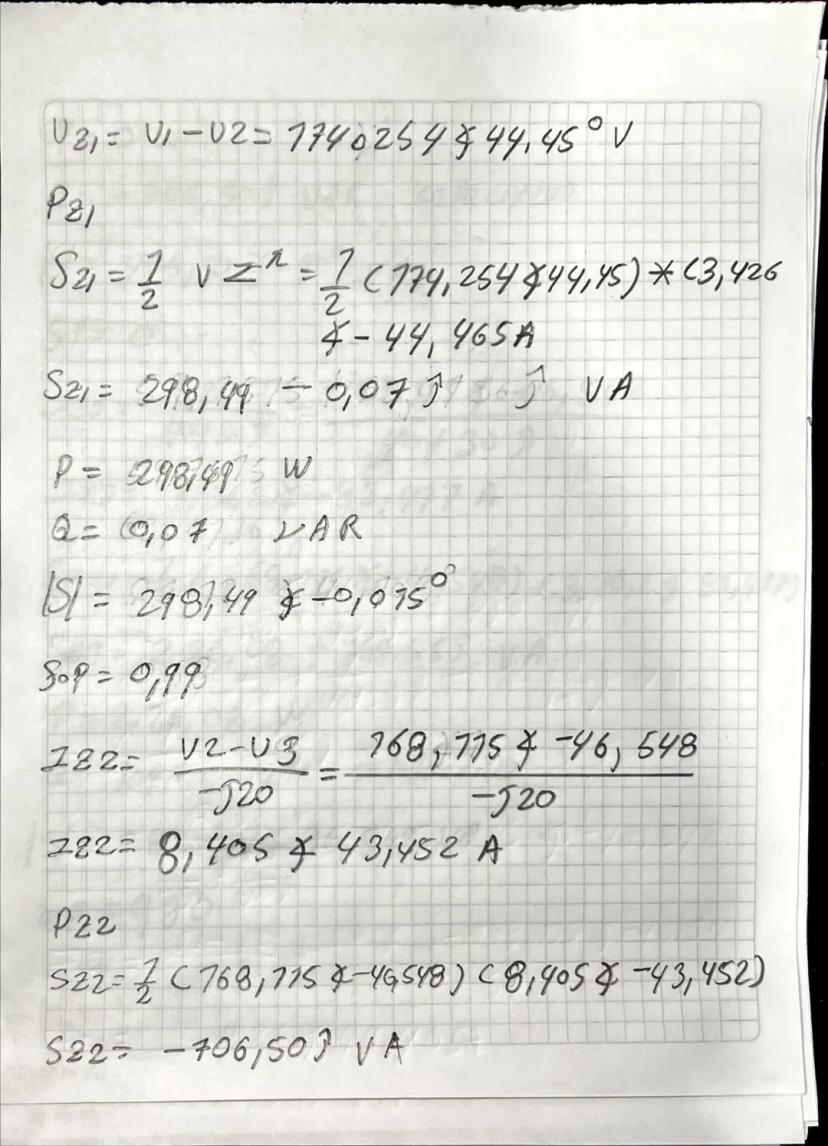 Uz₁ = U₁ - U2 = 1740254 ∡ 44,45° V
Pz₁
Sz₁ = 1/2 V I* = 1/2 (174,254 ∡ 44,45) * (3,426
∡ - 44, 465A
Sz₁ = 298,49 - 0,07 j j VA
P = 298,49 W
Q = (0,07 VAR
|S| = 298,49 ∡ -0,015°
foP = 0,99
Iz2 = U2-U3 / -j20 = 168,115 ∡ -46,548 / -j20
Iz2 = 8,405 ∡ 43,452 A
Pz2
Sz2 = 1/2 (168,115 ∡ -46,548) (8,405 ∡ -43,452)
Sz2 = -706,50j VA